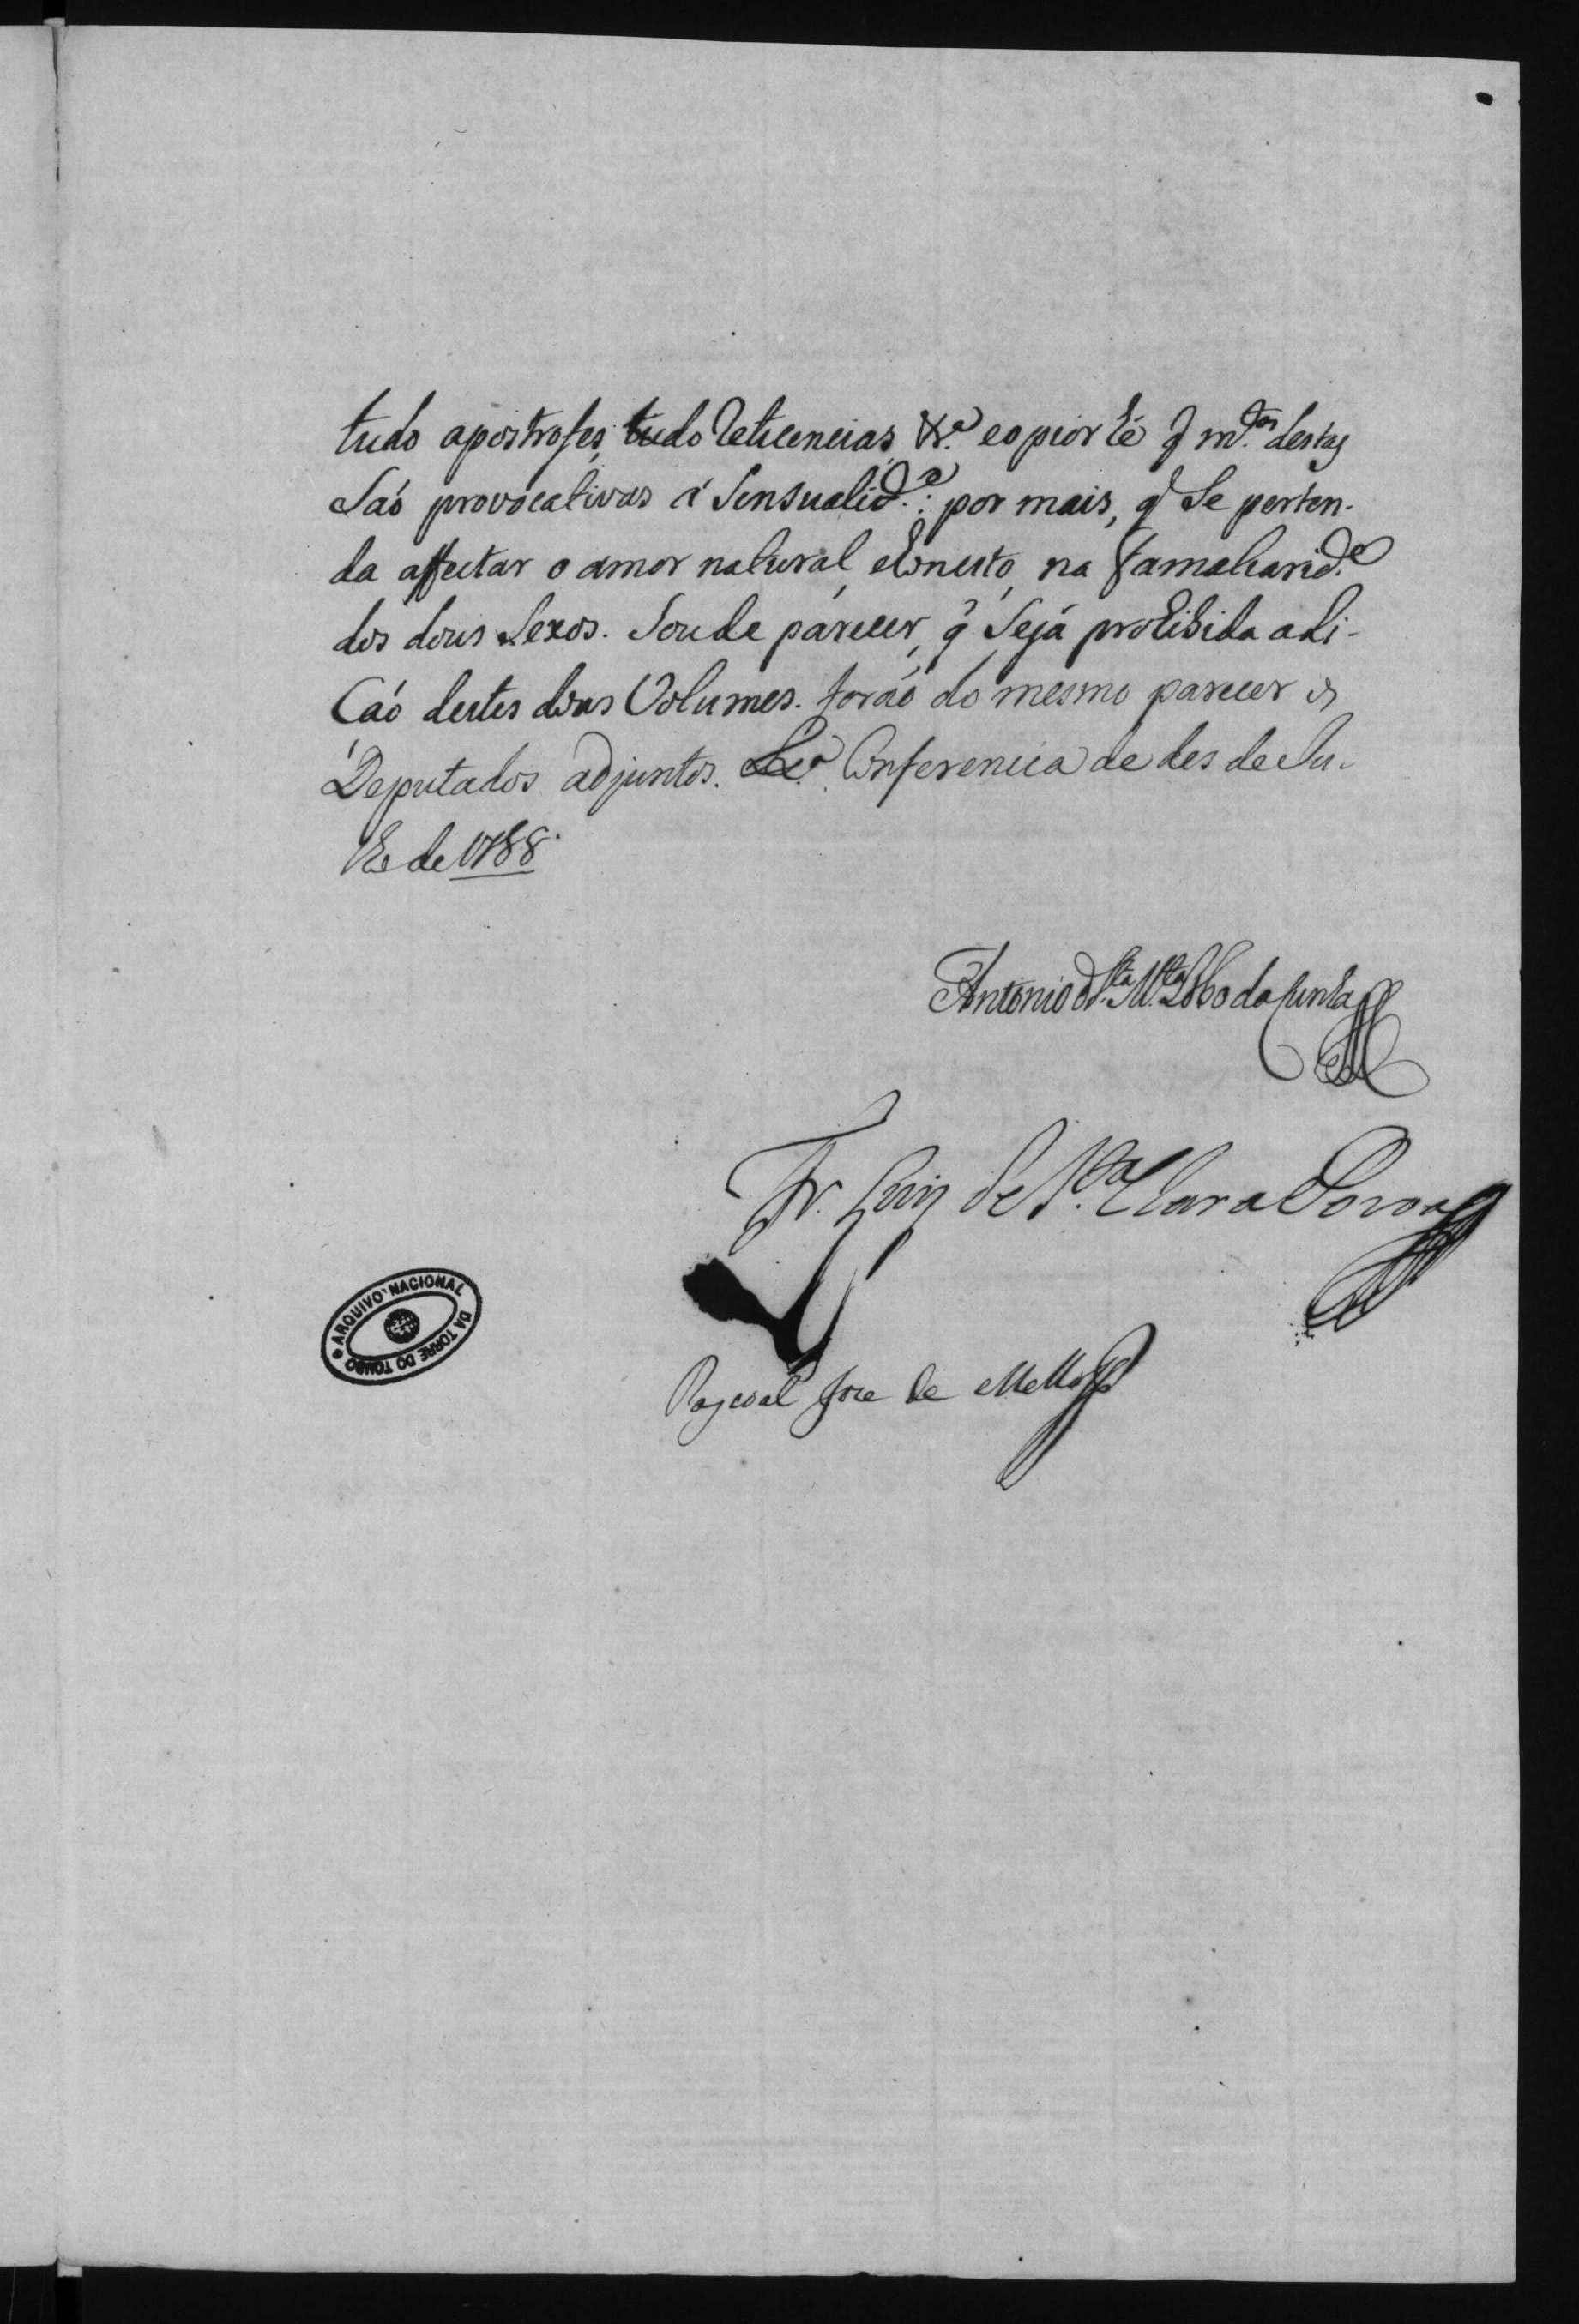 tudo apostrofes, tudo Reticencias, &.ª e o pior hé q m.tas destas
Saó provocativas á Sensualid.e: por mais, q Se perten-
da affectar o amor natural, e honesto, na famaliarid.e
dos dous Sexos. Sou de parecer, q Sejá prohibida a li-
Caó destes dous Volumes. foraó do mesmo parecer os
Deputados adjuntos. Lx.ª Conferencia de des de Ju-
lho de 1788.
Antonio de S.ta M.ta Lobo da Cunha
Fr. Luiz de S.ta Clara Povoa
Pascoal Jose de Mello
ARQUIVO NACIONAL DA TORRE DO TOMBO